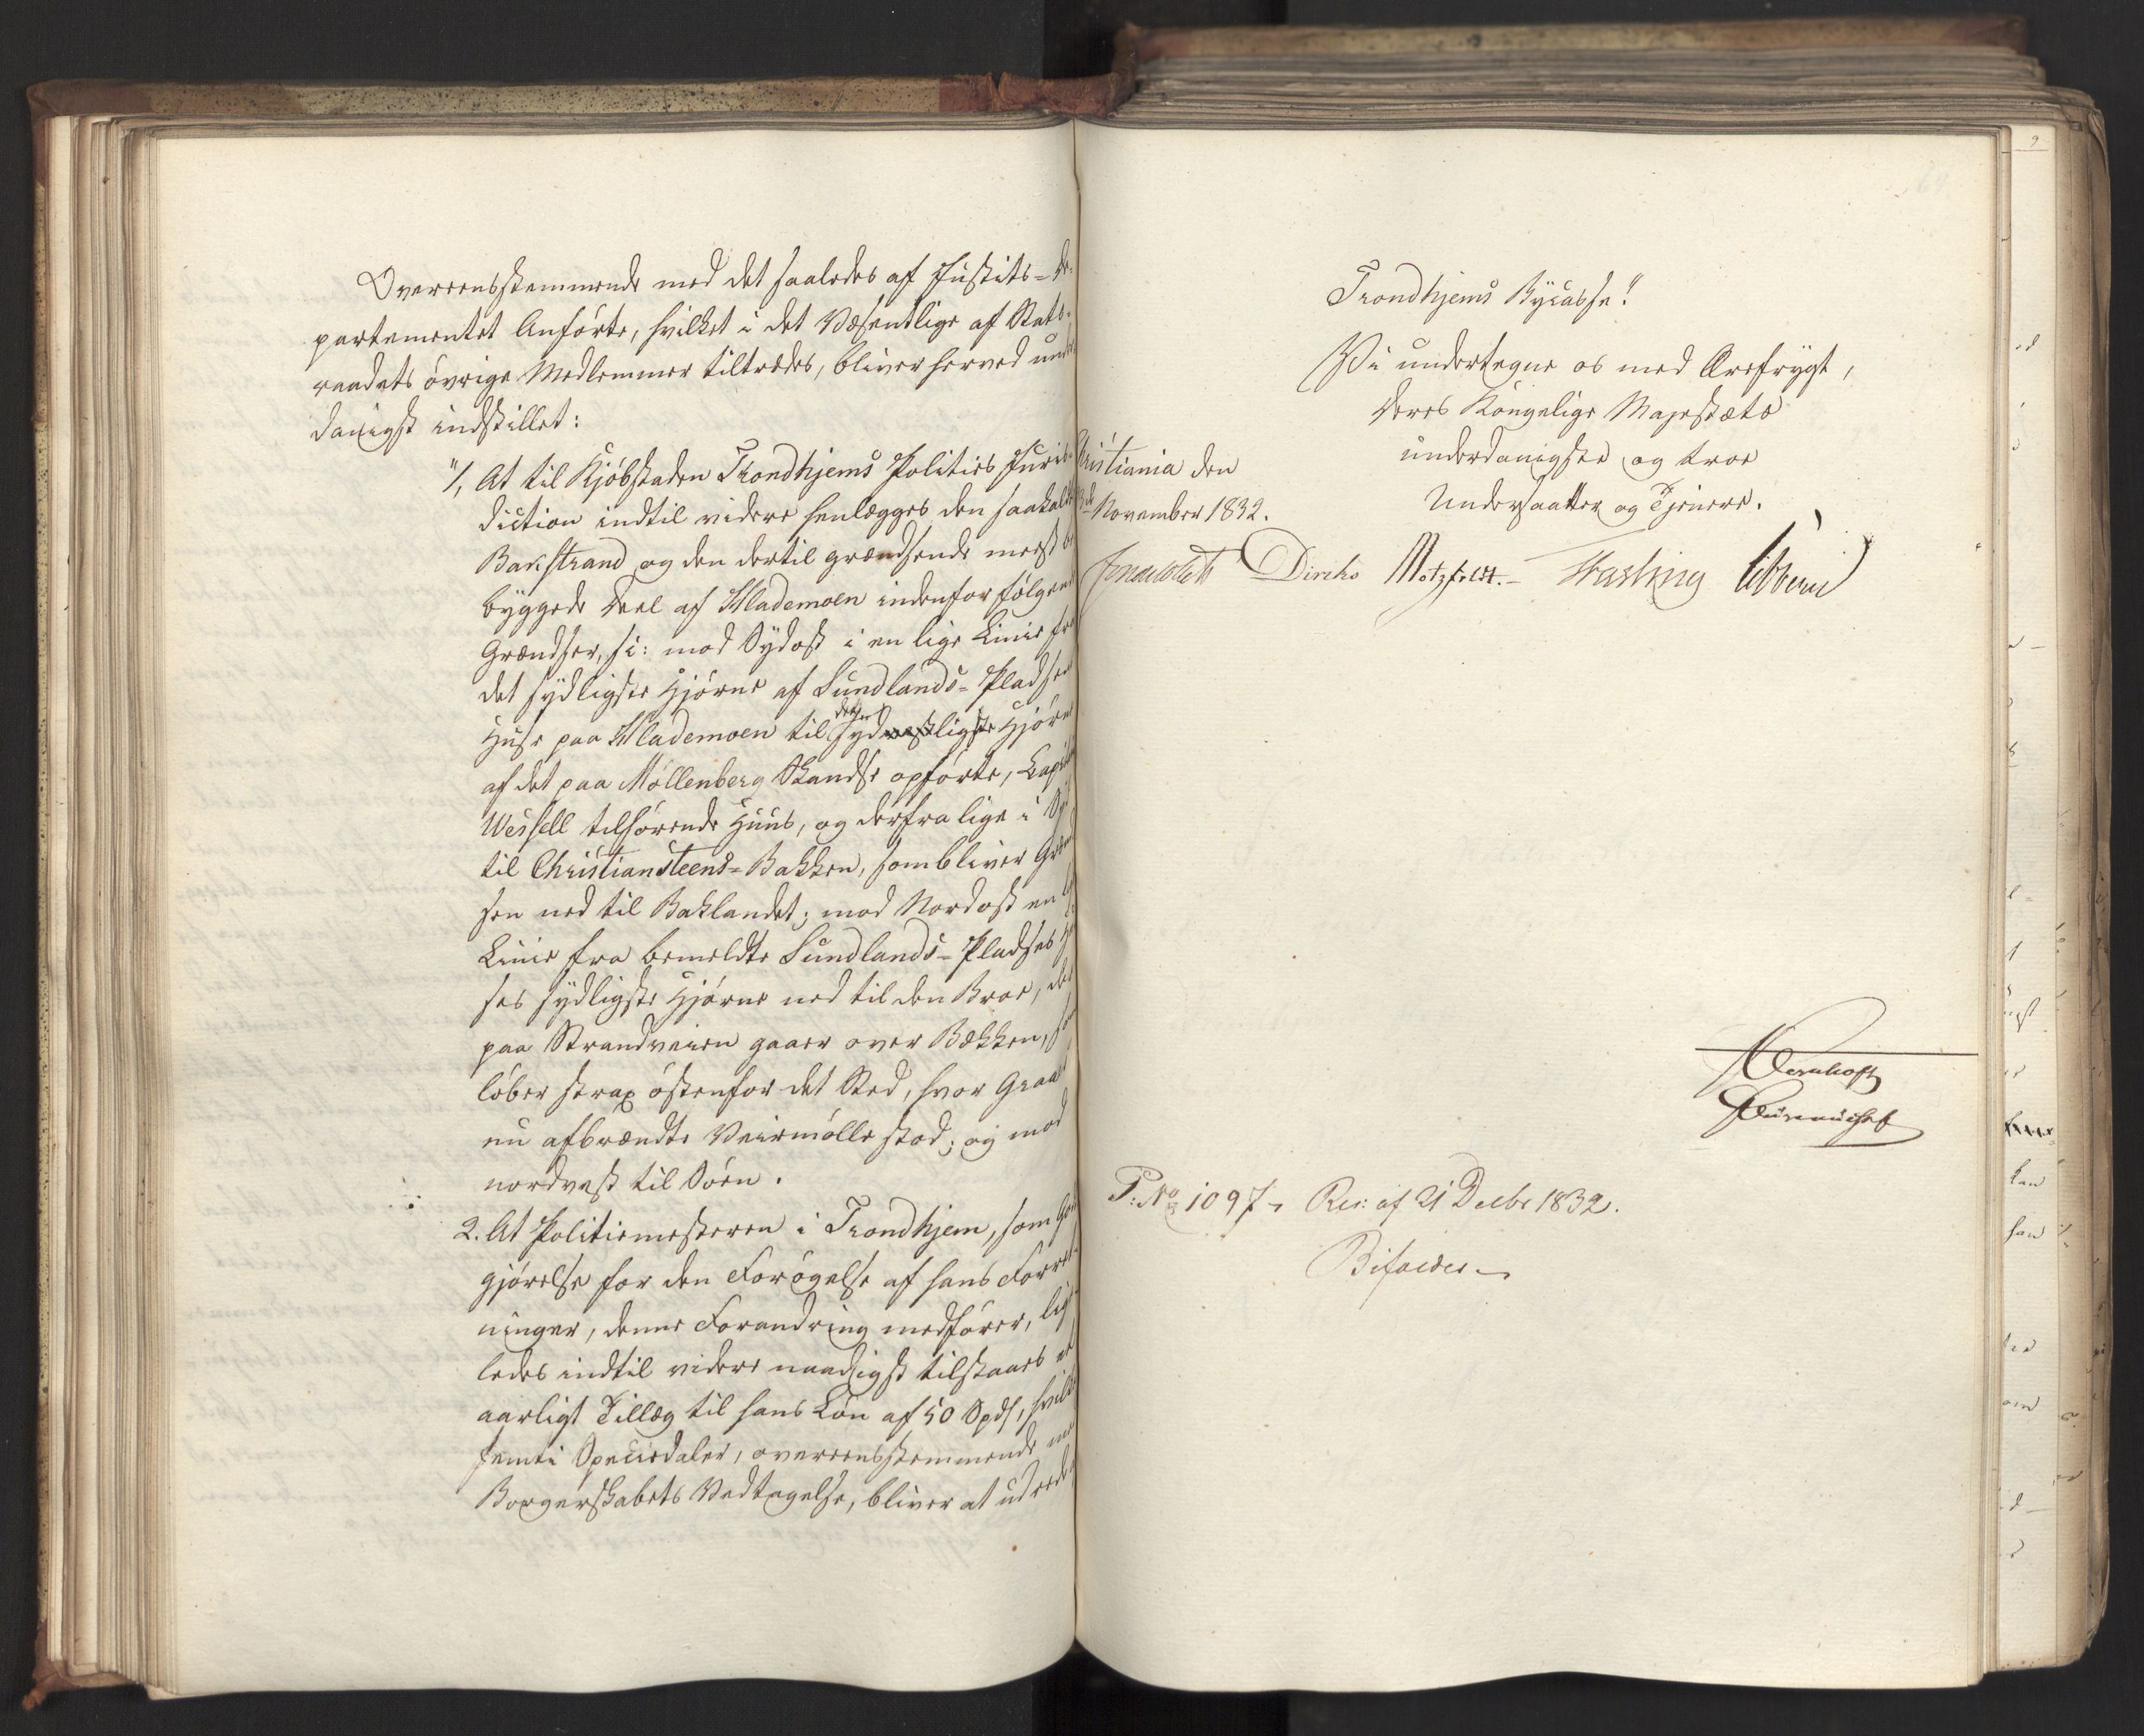 Overeensstemmende med det saaledes af Justits-De-
partementet Anførte, hvilket i det Væsentlige af Stats-
raadets øvrige Medlemmer tiltrædes, bliver herved under
danigst indstillet:
"1, At til Kjøbstaden Trondhjems Polities Juris-
diction indtil videre henlægges den saakaldte
Bakstrand og den dertil grændsende meest be
byggede Deel af Hlademoen indenfor følgende
Grændser, h: i: mod Sydost i en lige Linie fra
det sydligste Hjørne af Sundlands-Pladsens
Huse paa Hlademoen til det sydvestligste Hjørne
af det paa Møllenberg Skandse opførte, Capt
Wessell tilhørende Huus, og derfra lige i Syd
til Christiansteens-Bakken, som bliver Grænd
sen ned til Baklandet; mod Nordost en
Linie fra bemeldte Sundlands-Pladses Hu
ses sydligste Hjørne ned til den Broe, der
paa Strandveien gaaer over Bækken, som
løber strax østenfor det Sted, hvor Graaes
nu afbrændte Veirmølle stod; og mod
nordvest til Søen.
2. At Politiemesteren i Trondhjem, som God
gjørelse for den Forøgelse af hans Forret
ninger, denne Forandring medfører, lige
ledes indtil videre naadigst tilstaaes et
aarligt Tillæg til hans Løn af 50 Spd, hvilke
femti Speciedaler, overeensstemmende med
Borgerskabets Vedtagelse, bliver at udrede
Trondhjems Bycasse!"
Vi undertegne os med Ærefrygt,
Deres Kongelige Majestæts
underdanigste og troe
Undersaatter og Tjenere.
Christiania den
November 1832.
Diriks Motzfeldt. Fasting
P: No 1097. Res: af 21 Decbr 1832.
Bifaldes